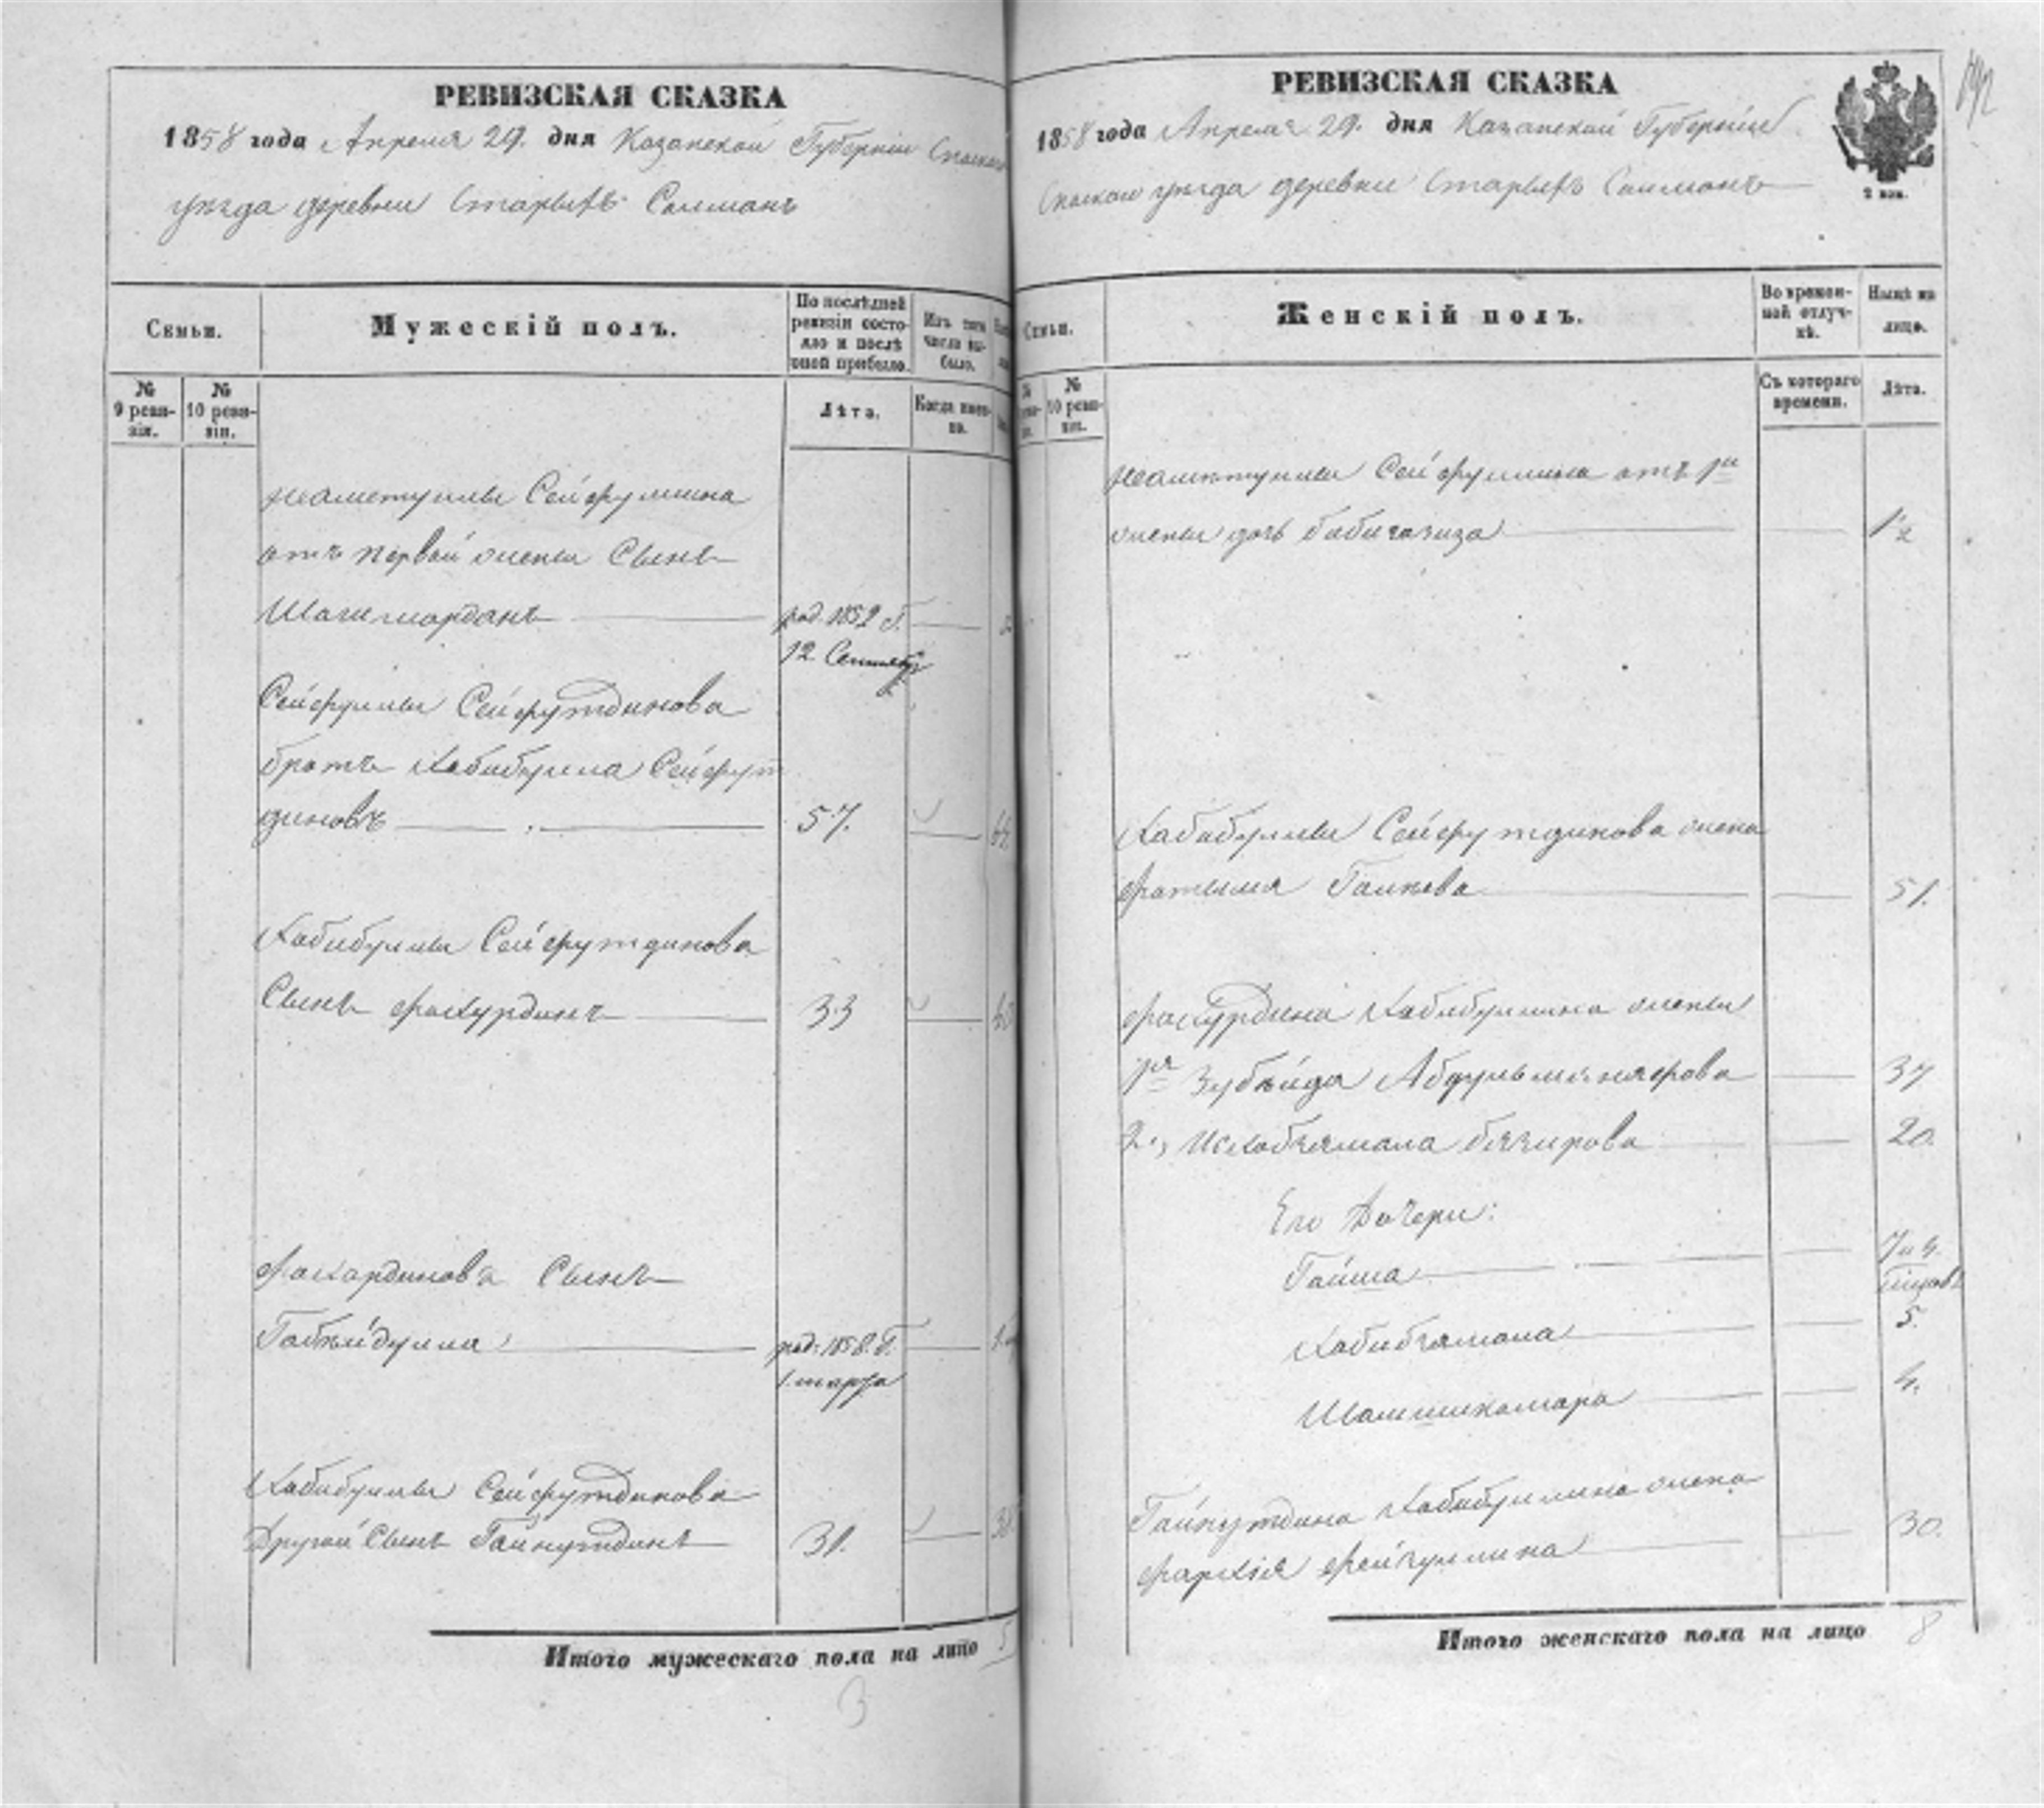 РЕВИЗСКАЯ СКАЗКА
1858 года Апреля 29. дня Казанской Губерніи Спаскаго
уезда деревни Старыхъ Салманъ
Семьи.
Мужескій полъ.
По послѣдней ревизіи состояло и послѣ оной прибыло.
Изъ того числа выбыло.
№ 9 ревизіи.
№ 10 ревизіи.
Лѣта.
Когда именно.
Сейфулина
отъ первой жены Сынъ
Шагимарданъ
род. 1852 г.
12 Сентября
Сейфуллы Сейфутдинова
братъ Хабибулла Сейфут
диновъ
57.
Хабибуллы Сейфутдинова
Сынъ Фахурдинъ
33
Фахардинова Сынъ
Габейдулла
род. 1858. г.
1. марта
Хабибуллы Сейфутдинова
Другой Сынъ Гайнутдинъ
31.
Итого мужескаго пола на лицо 5
3
РЕВИЗСКАЯ СКАЗКА
1858 года Апреля 29. дня Казанской Губерніи
Спаскаго уезда деревни Старыхъ Салманъ
2 коп.
Семьи.
Женскій полъ.
Во временной отлучкѣ.
Нынѣ на лицо.
№ 10 ревизіи.
Съ котораго времени.
Лѣта.
Сейфуллина отъ 1й
жены дочь Бибигазиза
1½
Хабибуллы Сейфутдинова жена
Фатыма
51.
Фахурдина Хабибуллина жены
1я Зубѣйда
37
2.,
20.
Его Дочери:
Гайша
Хабибчямала
5.
Шамшикамара
4.
Гайнутдина Хабибуллина жена
30.
Итого женскаго пола на лицо 8